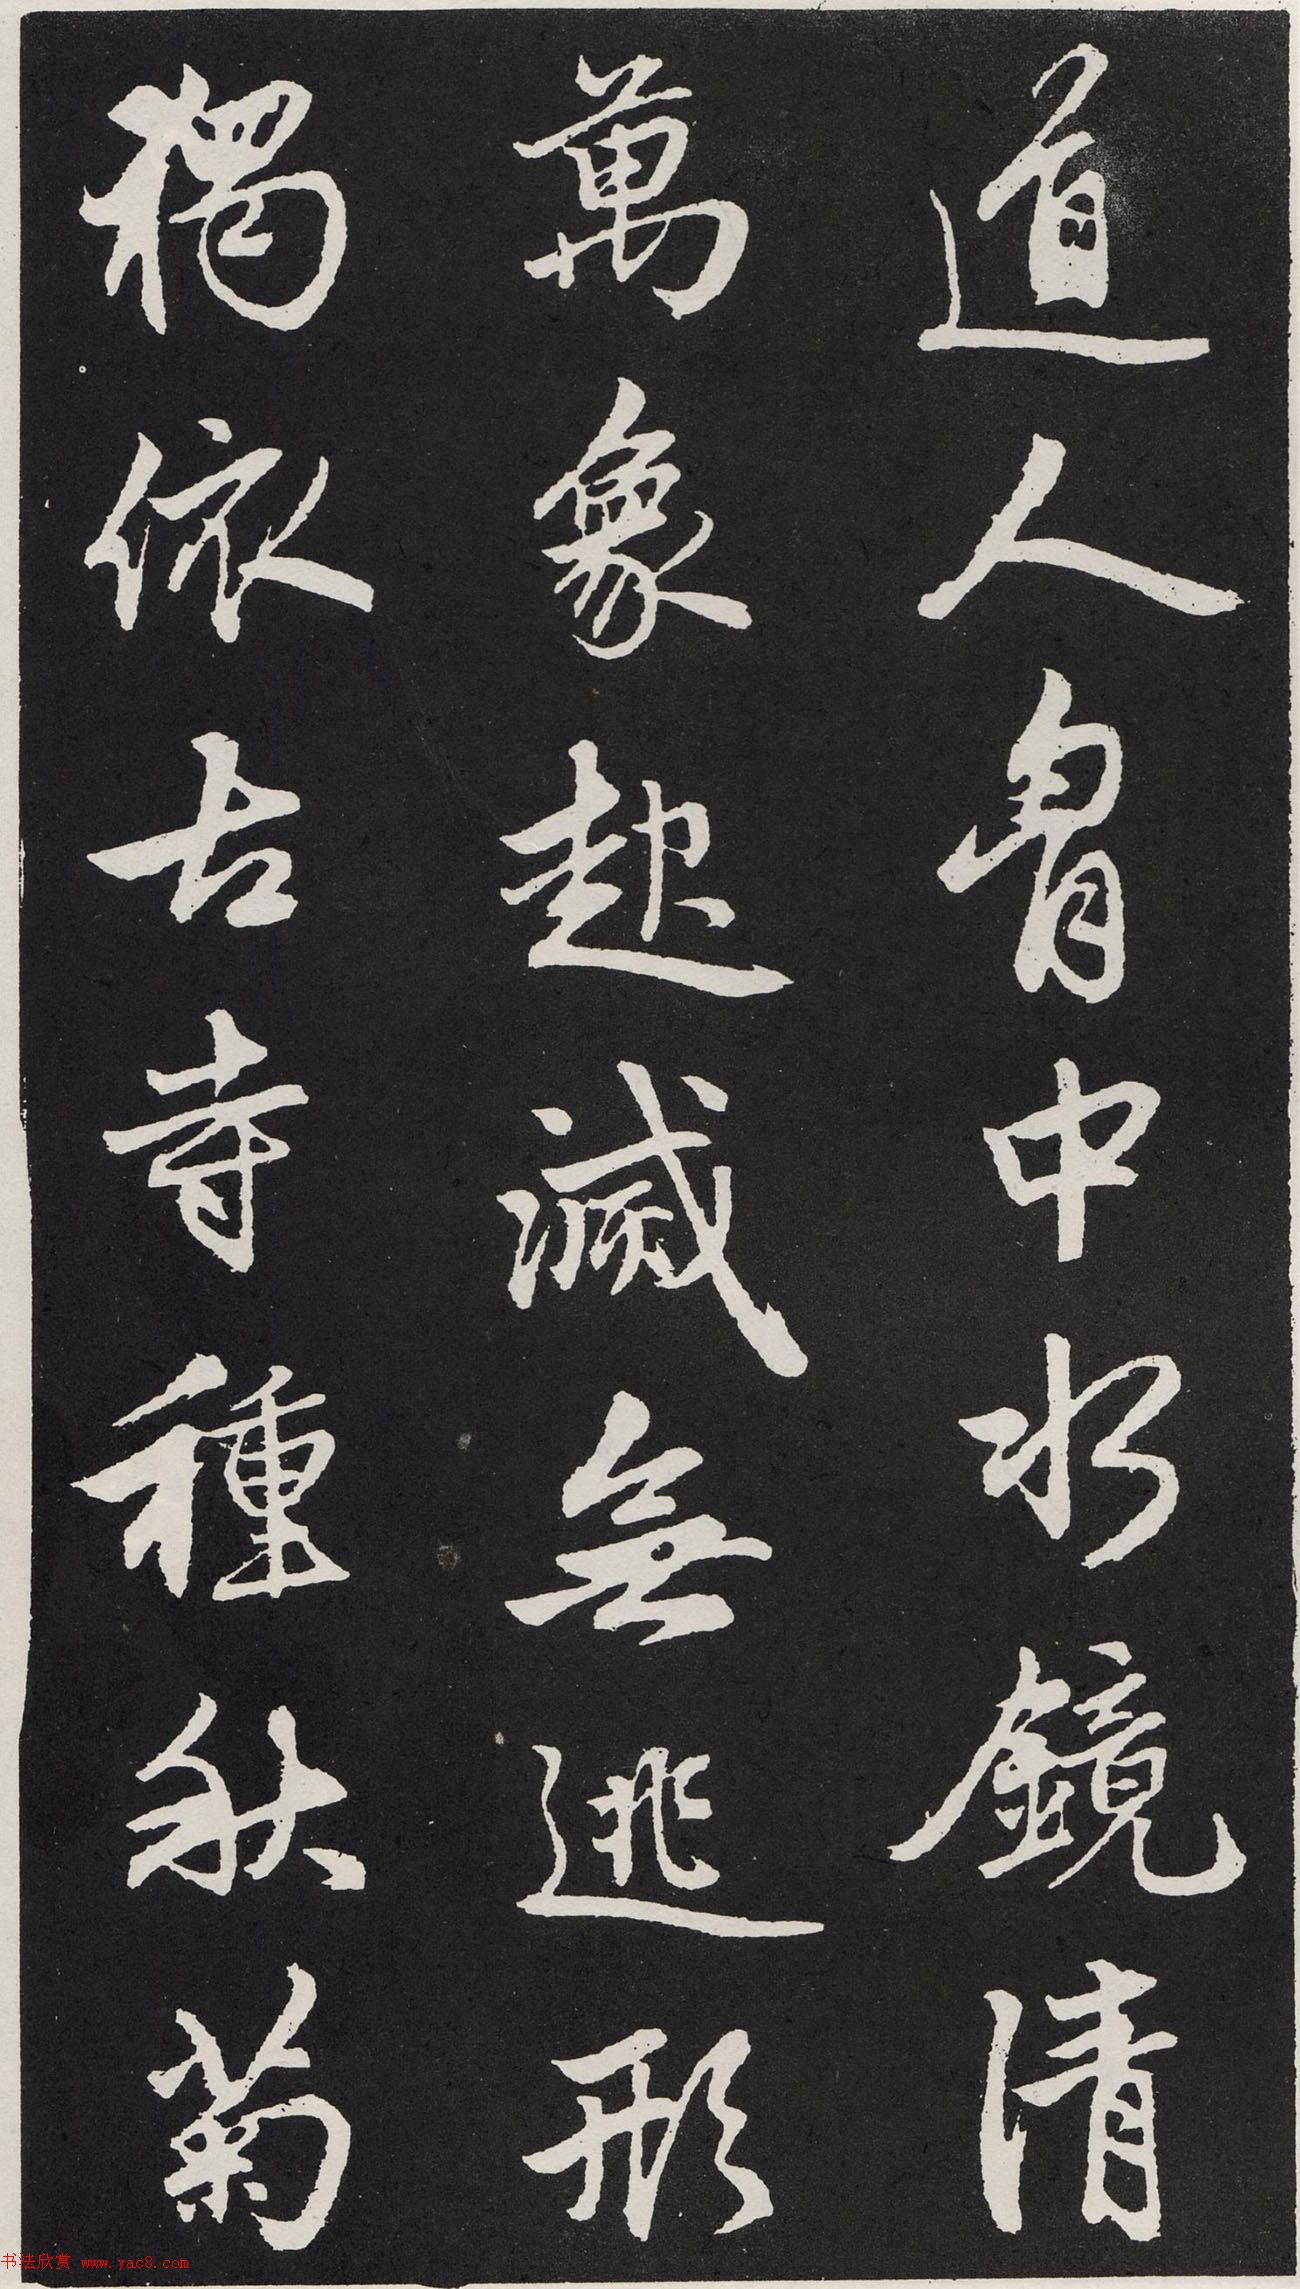 道人胷中水鏡清
萬象起滅無逃形
獨依古寺種秋菊
书法欣赏 www.yac8.com